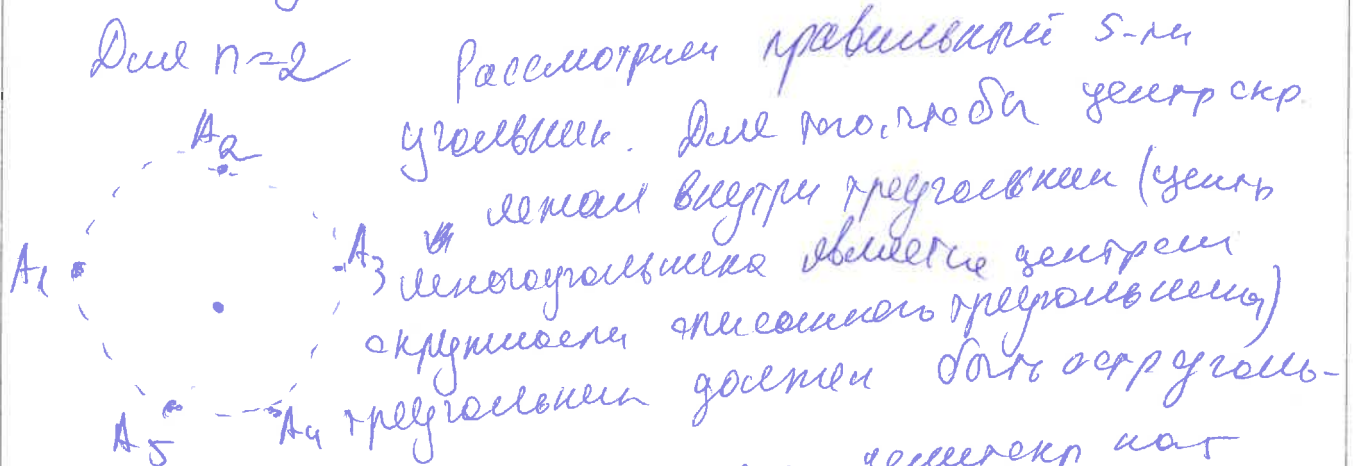 Для n=2 Рассмотрим правильный 5-ти
угольник. Для того, чтобы центр окр
A2
лежал внутри треугольник (центр
A1
A3
многоугольника является центром
окружности описанного треугольника)
A5
A4
треугольник должен быть остроуголь-